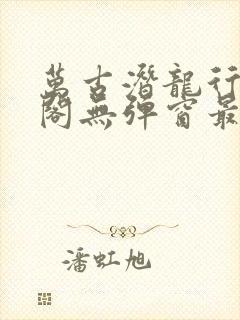 萬古潛龍行
閣無彈窗最
潘虹旭